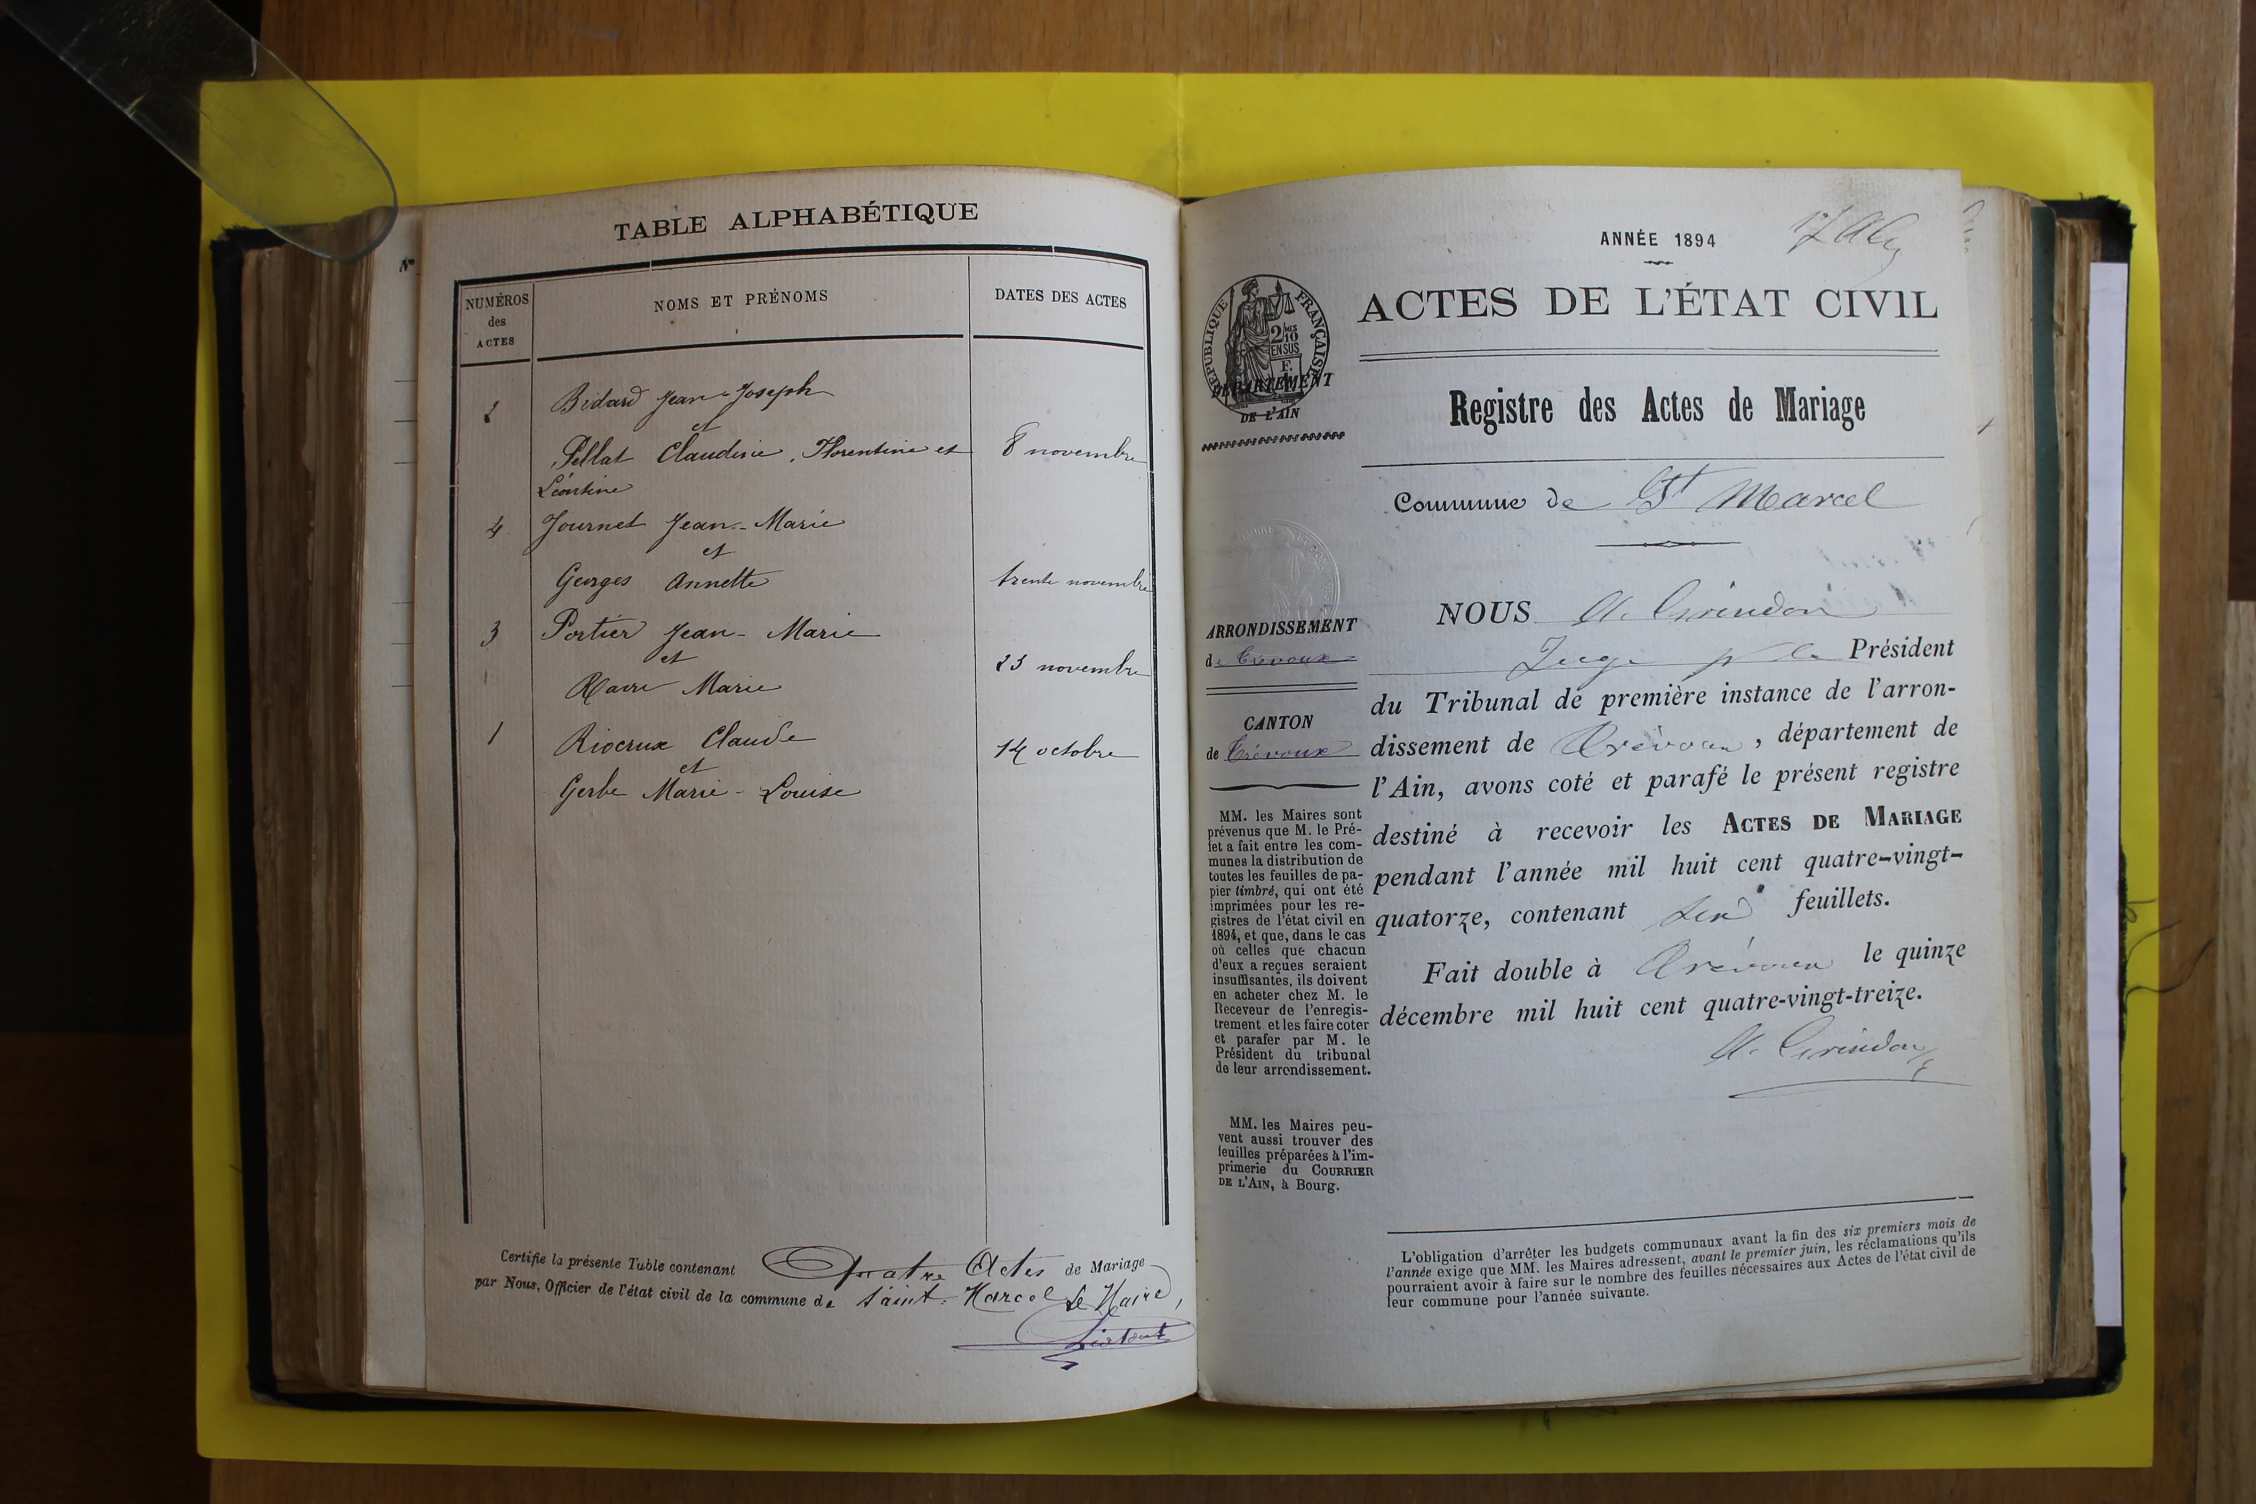 TABLE ALPHABÉTIQUE
NUMÉROS
des
ACTES
NOMS ET PRÉNOMS
DATES DES ACTES
2
Bidard Jean-Joseph
et
Pellat Claudine, Florentine et
8 novembre
Léontine
4 Journet Jean-Marie
et
Georges Annette
trente novembre
3 Portier Jean-Marie
et
23 novembre
Marie
1 Riocrux Claude
14 octobre
et
Gerbe Marie-Louise
Certifie la présente Table contenant Quatre Actes de Mariage
par Nous, Officier de l'état civil de la commune de Saint-Marcel Le Maire,
N°
ANNÉE 1894
RÉPUBLIQUE FRANÇAISE
2 DES
10
EN SUS
DÉPARTEMENT
DE L'AIN
ACTES DE L'ÉTAT CIVIL
Registre des Actes de Mariage
Commune de St Marcel
ARRONDISSEMENT
de Trévoux
CANTON
de Trévoux
MM. les Maires sont
prévenus que M. le Pré-
fet a fait entre les com-
munes la distribution de
toutes les feuilles de pa-
pier timbré, qui ont été
imprimées pour les re-
gistres de l'état civil en
1894, et que, dans le cas
où celles que chacun
d'eux a reçues seraient
insuffisantes, ils doivent
en acheter chez M. le
Receveur de l'enregis-
trement et les faire coter
et parafer par M. le
Président du tribunal
de leur arrondissement.
MM. les Maires peu-
vent aussi trouver des
feuilles préparées à l'im-
primerie du COURRIER
DE L'AIN, à Bourg.
NOUS
Juge Président
du Tribunal de première instance de l'arron-
dissement de Trévoux, département de
l'Ain, avons coté et parafé le présent registre
destiné à recevoir les ACTES DE MARIAGE
pendant l'année mil huit cent quatre-vingt-
quatorze, contenant feuillets.
Fait double à Trévoux le quinze
décembre mil huit cent quatre-vingt-treize.
L'obligation d'arrêter les budgets communaux avant la fin des six premiers mois de
l'année exige que MM. les Maires adressent, avant le premier juin, les réclamations qu'ils
pourraient avoir à faire sur le nombre des feuilles nécessaires aux Actes de l'état civil de
leur commune pour l'année suivante.